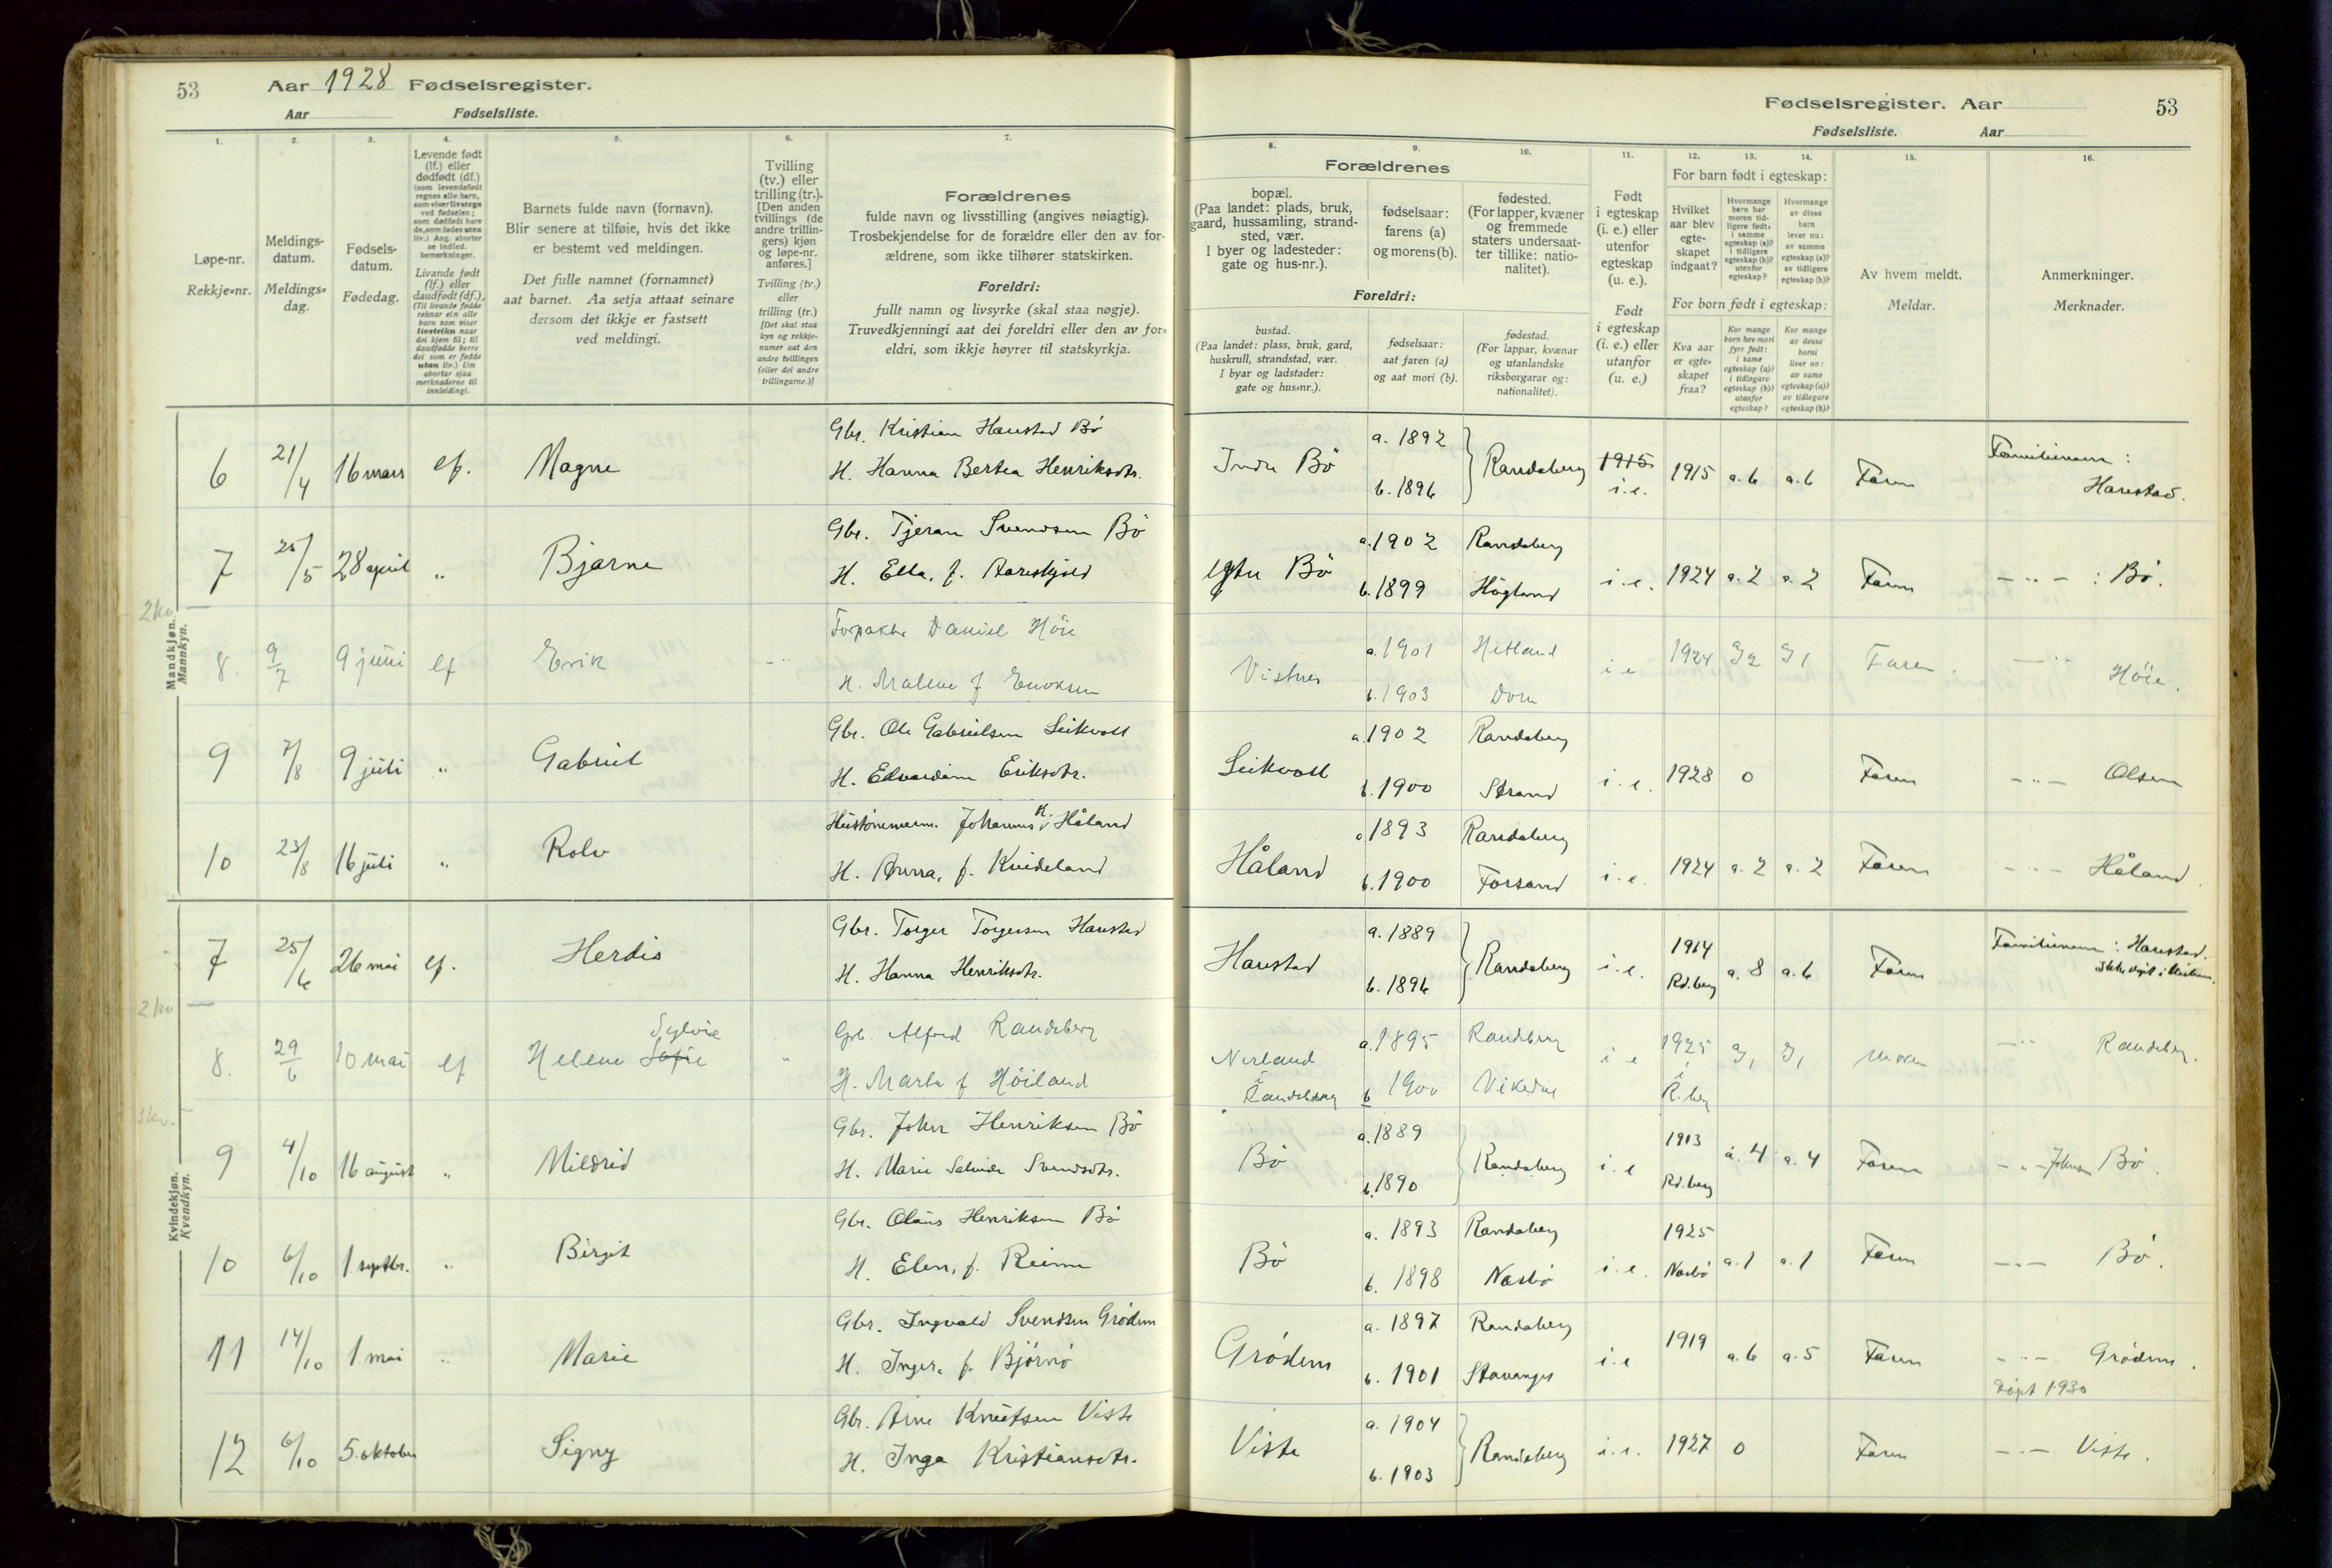 53
Aar 1928 Fødselsregister.
Aar Fødselsliste.
1.
2.
3.
4.
5.
6.
7.
Løpe-nr.
Rekkje-nr.
Meldings-
datum.
Meldings-
dag.
Fødsels-
datum.
Fødedag.
Levende født
(lf.) eller
dødfødt (df.)
(som levendefødt
regnes alle barn,
som viser livstegn
ved fødselen;
som dødfødt bare
de, som fødes uten
liv.) Ang. aborter
se indled.
bemerkninger.
Livande født
(lf.) eller
daudfødt (df.).
(Til livande fødde
reknar ein alle
born som viser
livsteikn naar
dei kjem til; til
daudfødde berre
dei som er fødde
utan liv.) Um
abortar sjaa
merknaderne til
innleidingi.
Barnets fulde navn (fornavn).
Blir senere at tilføie, hvis det ikke
er bestemt ved meldingen.
Det fulle namnet (fornamnet)
aat barnet. Aa setja attaat seinare
dersom det ikkje er fastsett
ved meldingi.
Tvilling
(tv.) eller
trilling (tr.).
[Den anden
tvillings (de
andre trillin-
gers) kjøn
og løpe-nr.
anføres.]
Tvilling (tv.)
eller
trilling (tr.)
[Det skal staa
kyn og rekkje-
numer aat den
andre tvillingen
(eller dei andre
trillingarne.)]
Forældrenes
fulde navn og livsstilling (angives nøiagtig).
Trosbekjendelse for de forældre eller den av for-
ældrene, som ikke tilhører statskirken.
Foreldri:
fullt namn og livsyrke (skal staa nøgje).
Truvedkjenningi aat dei foreldri eller den av for-
eldri, som ikkje høyrer til statskyrkja.
Fødselsregister. Aar
53
Fødselsliste. Aar
8.
9.
10.
11.
12.
13.
14.
15.
16.
Forældrenes
bopæl.
(Paa landet: plads, bruk,
gaard, hussamling, strand-
sted, vær.
I byer og ladesteder:
gate og hus-nr.).
fødselsaar:
farens (a)
og morens (b).
fødested.
(For lapper, kvæner
og fremmede
staters undersaat-
ter tillike: natio-
nalitet).
Foreldri:
bustad.
(Paa landet: plass, bruk, gard,
huskrull, strandstad, vær.
I byar og ladstader:
gate og hus-nr.).
fødselsaar:
aat faren (a)
og aat mori (b).
fødestad.
(For lappar, kvænar
og utanlandske
riksborgarar og:
nationalitet).
Født
i egteskap
(i. e.) eller
utenfor
egteskap
(u. e.).
Født
i egteskap
(i. e.) eller
utanfor
(u. e.)
For barn født i egteskap:
Hvilket
aar blev
egte-
skapet
indgaat?
Hvormange
barn har
moren tid-
ligere født:
i samme
egteskap (a)?
i tidligere
egteskap (b)?
utenfor
egteskap?
Hvormange
av disse
barn
lever nu:
av samme
egteskap (a)?
av tidligere
egteskap (b)?
For born født i egteskap:
Kva aar
er egte-
skapet
fraa?
Kor mange
born hev mori
fyrr født:
i same
egteskap (a)?
i tidlegare
egteskap (b)?
utanfor
egteskap?
Kor mange
av desse
borni
liver no:
av same
egteskap (a)?
av tidlegare
egteskap (b)?
Av hvem meldt.
Meldar.
Anmerkninger.
Merknader.
Mandkjøn.
Mannkyn.
6 21/4 16 mars lf. Magne
Gbr. Kristian Harestad Bö
H. Hanna Bertea Henriksdtr.
Indre Bö a. 1892 b. 1896 Randaberg 1915 i.e. 1915 a. 6 a. 6 Faren Familienavn: Harestad.
7 25/5 28 april " Bjarne
Gbr. Tjeran Svendsen Bö
H. Ella, f. Aareskjold
Bö a. 1902 Randaberg
b. 1899 Högland i.e. 1924 a. 2 a. 2 Faren — " — : Bö.
2 kv
8. 9/7 9 juni lf Erik
Forpakter Daniel Höie
H. Malene f
Vistnes a. 1901 Hetland
b. 1903 i e 1924 Faren — " Höie.
9 7/8 9 juli " Gabriel
Gbr. Ole Gabrielsen Leikvoll
H. Eriksdtr.
Leikvoll a. 1902 Randaberg
b. 1900 Strand i. e. 1928 0 Faren — " — Olsen
10 23/8 16 juli " Rolv
Johannes K. Håland
H. Anna, f. Kvideland
Håland a. 1893 Randaberg
b. 1900 Forsand i. e. 1924 a. 2 a. 2 Faren — " — Håland.
Kvindekjøn.
Kvendkyn.
7 25/6 26 mai lf. Herdis
Gbr. Torger Torgersen Harestad
H. Hanna Henriksdtr.
Harestad a. 1889 b. 1896 Randaberg i. e. 1914 Rd.berg a. 8 a. 6 Faren Familienavn: Harestad.
2 kv
8. 29/6 10 mai lf Helene Sofie Sylvie "
Gbr. Alfred Randeberg
H. Marta f Höiland
Nerland i Randeberg a. 1895 Randeberg
b 1900 Vikedal i e 1925 i R.berg Moren — " Randeberg.
3 kv.
9 4/10 16 august " Mildrid
Gbr. John Henriksen Bö
H. Marie Svendsdtr.
Bö a. 1889 b. 1890 Randaberg i. e 1913 Rd.berg a. 4 a. 4 Faren — " — Johnsen Bö.
10 6/10 1 septbr. " Birgit
Gbr. Olaus Henriksen Bö
H. Elen, f. Reime
Bö a. 1893 Randaberg
b. 1898 Nærbö i. e. 1925 Nærbö a. 1 a. 1 Faren — " — Bö.
11 14/10 1 mai " Marie
Gbr. Ingvald Svendsen Grödem
H. Inger, f. Björnö
Grödem a. 1897 Randaberg
b. 1901 Stavanger i. e 1919 a. 6 a. 5 Faren — " — Grödem.
döpt 1930
12 6/10 5. oktober Signy
Gbr. Arne Knutsen Viste
H. Inga Kristiansdtr.
Viste a. 1904 b. 1903 Randaberg i. e. 1927 0 Faren — " — Viste.